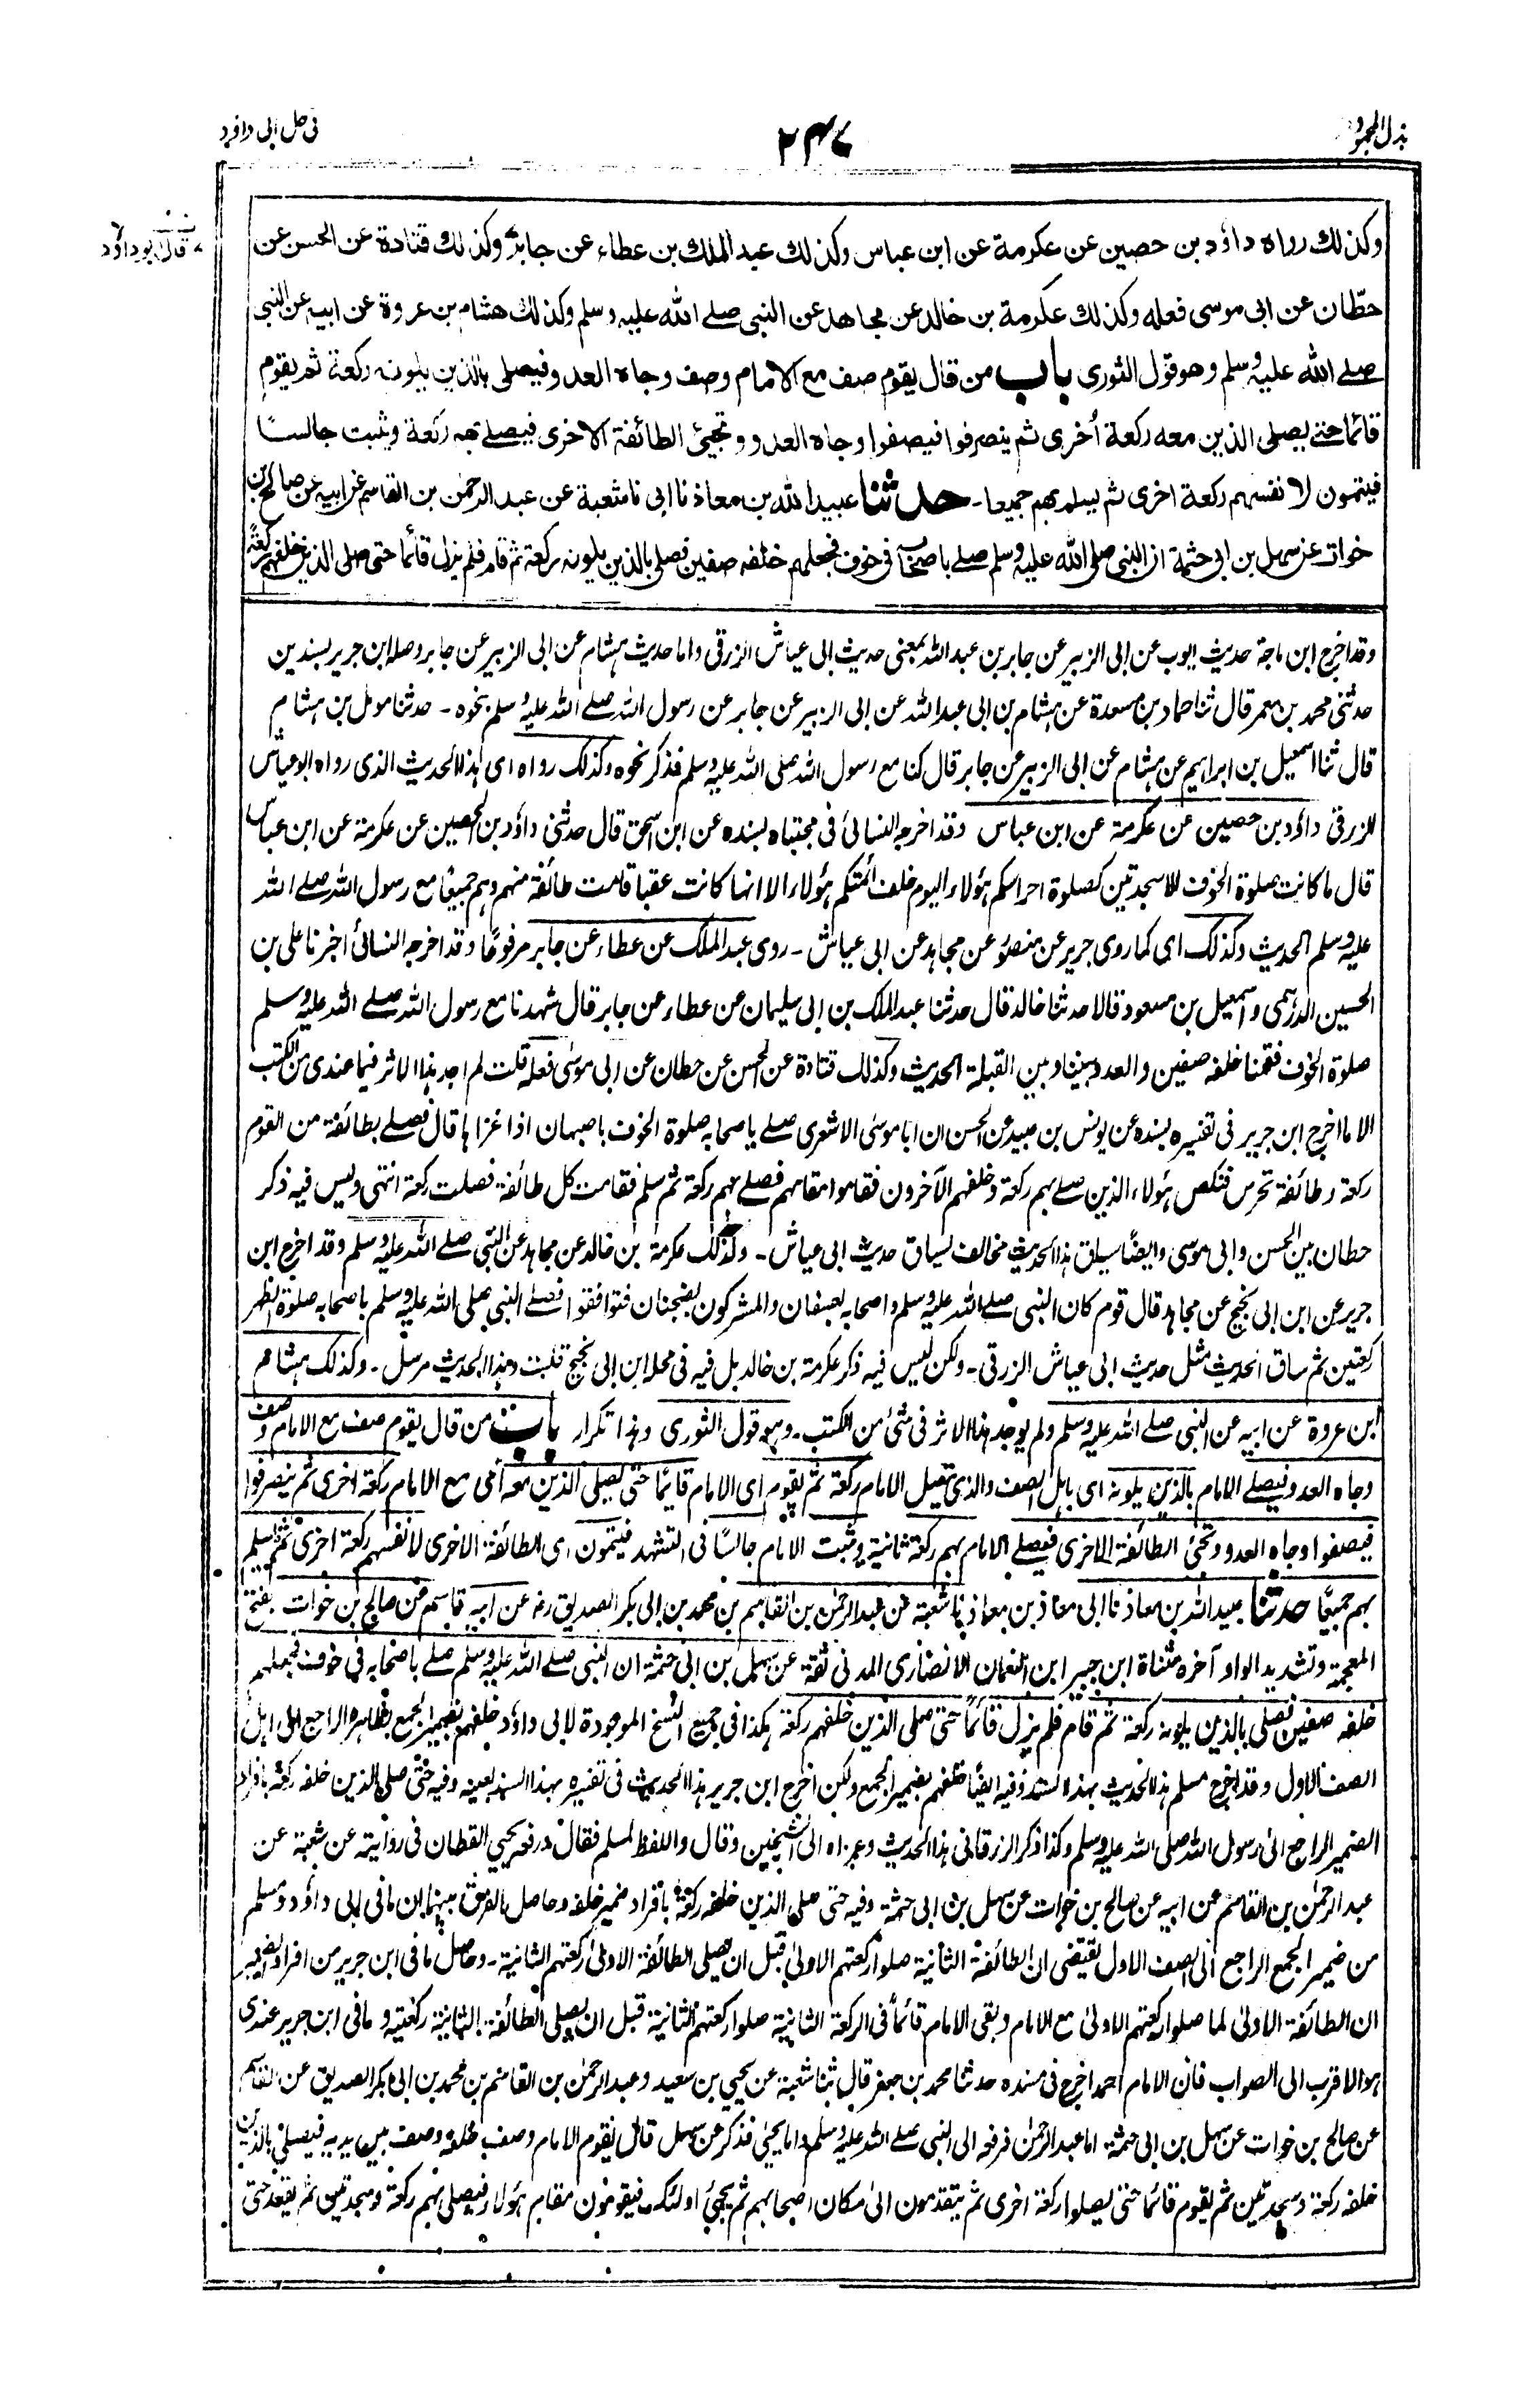 بذل المجهود
٢٤٧
فی حل ابی داؤد
قال ابو داؤد
وكذلك رواه داؤد بن حصين عن عكرمة عن ابن عباس وكذلك عبد الملك بن عطاء عن جابر وكذلك قتادة عن الحسن عن
حطّان عن ابى موسى فعله وكذلك عكرمة بن خالد عن مجاهد عن النبى صلے الله عليه وسلم وكذلك هشام بن عروة عن ابيه عن النبى
صلے الله عليه وسلم وهو قول الثورى باب من قال يقوم صف مع الامام وصف وجاه العدو فيصلى بالذين يلونه ركعة ثم يقوم
قائما حتے يصلى الذين معه ركعة أخرى ثم ينصرفوا فيصفوا وجاه العدو وتجيئ الطائفة الاخرى فيصلے بهم ركعة ويثبت جالسًا
فيتمون لانفسهم ركعة اخرى ثم يسلم بهم جميعا۔ حدثنا عبيد الله بن معاذ نا ابى نا شعبة عن عبد الرحمن بن القاسم عن ابيه عن صالح بن
خوات عن سهل بن ابى حثمة ان النبى صلى الله عليه وسلم صلے باصحابه فى خوف فجعلهم خلفه صفين فصلى بالذين يلونه ركعة ثم قام فلم يزل قائما حتى صلى الذين خلفهم ركعة
وقد اخرج ابن ماجة حديث ايوب عن ابى الزبير عن جابر بن عبد الله بمعنى حديث ابى عياش الزرقى واما حديث هشام عن ابى الزبير عن جابر وصله ابن جرير بسندين
حدثنى محمد بن معمر قال ثنا حماد بن مسعدة عن هشام بن ابى عبد الله عن ابى الزبير عن جابر عن رسول الله صلے الله عليه وسلم بنحوه ۔ حدثنا مومل بن هشام
قال ثنا اسمٰعيل بن ابراهيم عن هشام عن ابى الزبير عن جابر قال كنا مع رسول الله صلى الله عليه وسلم فذكر نحوه وكذلك رواه اى هذا الحديث الذى رواه ابو عياش
الزرقى داؤد بن حصين عن عكرمة عن ابن عباس وقد اخرجه النسائى فى مجتباه بسنده عن ابن اسحق قال حدثنى داؤد بن الحصين عن عكرمة عن ابن عباس
قال ما كانت صلوة الخوف الا سجدتين كصلوة احراسكم هؤلاء اليوم خلف ائمتكم هؤلاء الا انها كانت عقبا قامت طائفة منهم وهم جميعًا مع رسول الله صلے الله
عليه وسلم الحديث وكذلك اى كما روى جرير عن منصور عن مجاهد عن ابى عياش ۔ روى عبد الملك عن عطاء عن جابر مرفوعًا وقد اخرجه النسائى اخبرنا على بن
الحسين الدرهمى واسمٰعيل بن مسعود قالا حدثنا خالد قال حدثنا عبد الملك بن ابى سليمان عن عطاء عن جابر قال شهدنا مع رسول الله صلے الله عليه وسلم
صلوة الخوف فقمنا خلفه صفين والعدو بيننا وبين القبلة الحديث وكذلك قتادة عن الحسن عن حطان عن ابى موسى فعله قلت لم اجد هذا الاثر فيما عندى من الكتب
الا ما اخرج ابن جرير فى تفسيره بسنده عن يونس بن عبيد عن الحسن ان ابا موسى الاشعرى صلے باصحابه صلوة الخوف باصبهان اذا غزاها قال فصلے بطائفة من القوم
ركعة وطائفة تحرس فنكص هؤلاء الذين صلے بهم ركعة وخلفهم الآخرون فقاموا مقامهم فصلے بهم ركعة ثم سلم فقامت كل طائفة فصلت ركعة انتهى وليس فيه ذكر
حطان بين الحسن وابى موسى وايضًا سياق هذا الحديث مخالف لسياق حديث ابى عياش ۔ وكذلك عكرمة بن خالد عن مجاهد عن النبى صلے الله عليه وسلم وقد اخرج ابن
جرير عن ابن ابى نجيح عن مجاهد قال قوم كان النبى صلے الله عليه وسلم واصحابه بعسفان والمشركون بضجنان فتوافقوا فصلے النبى صلى الله عليه وسلم باصحابه صلوة الظهر
ركعتين ثم ساق الحديث مثل حديث ابى عياش الزرقى ۔ ولكن ليس فيه ذكر عكرمة بن خالد بل فيه فى محله ابن ابى نجيح قلت وهذا الحديث مرسل ۔ وكذلك هشام
ابن عروة عن ابيه عن النبى صلے الله عليه وسلم ولم يوجد هذا الاثر فى شئ من الكتب ۔ وهو قول الثورى وهذا تكرار باب من قال يقوم صف مع الامام وصف
وجاه العدو فيصلے الامام بالذين يلونه اى باهل الصف والذى يصل الامام ركعة ثم يقوم اى الامام قايمًا حتى يصلى الذين معه اى مع الامام ركعة اخرى ثم ينصرفوا
فيصفوا وجاه العدو وتجئ الطائفة الاخرى فيصلے الامام بهم ركعة ثانية ويثبت الامام جالسًا فى التشهد فيتمون اى الطائفة الاخرى لانفسهم ركعة اخرى ثم يسلم
بهم جميعًا حدثنا عبيد الله بن معاذ نا ابى معاذ بن معاذ نا شعبة عن عبد الرحمٰن بن القاسم بن محمد بن ابى بكر الصديق رضه عن ابيه قاسم عن صالح بن خوات بفتح
المعجمة وتشديد الواو آخره مثناة ابن جبير ابن النعمان الانصارى المدنى ثقة عن سهل بن ابى حثمة ان النبى صلے الله عليه وسلم صلے باصحابه فى خوف فجعلهم
خلفه صفين فصلى بالذين يلونه ركعة ثم قام فلم يزل قائمًا حتى صلى الذين خلفهم ركعة هكذا فى جميع النسخ الموجودة لابى داؤد خلفهم بضمير الجمع بظاهره الراجع الى اهل
الصف الاول وقد اخرج مسلم هذا الحديث بهذا السند وفيه ايضًا خلفهم بضمير الجمع ولكن اخرج ابن جرير هذا الحديث فى تفسيره بهذا السند بعينه وفيه حتى صلى الذين خلفه ركعة بافراد
الضمير الراجع الى رسول الله صلى الله عليه وسلم وكذا ذكر الزرقانى هذا الحديث وعزاه الى الشيخين وقال واللفظ لمسلم فقال ورفعه يحيى القطان فى روايته عن شعبة عن
عبد الرحمٰن بن القاسم عن ابيه عن صالح بن خوات عن سهل بن ابى حثمة وفيه حتى صلى الذين خلفه ركعة بافراد ضمير خلفه وحاصل الفرق بينهما ان ما فى ابى داؤد ومسلم
من ضمير الجمع الراجع الى الصف الاول يقتضى ان الطائفة الثانية صلوا ركعتهم الاولى قبل ان تصلى الطائفة الاولى ركعتهم الثانية ۔ وحاصل ما فى ابن جرير من افراد الضمير
ان الطائفة الاولى لما صلوا ركعتهم الاولى مع الامام وبقى الامام قائمًا فى الركعة الثانية صلوا ركعتهم الثانية قبل ان يصلى الطائفة الثانية ركعتيه وما فى ابن جرير عندى
هو الاقرب الى الصواب فان الامام احمد اخرج فى مسنده حدثنا محمد بن جعفر قال ثنا شعبة عن يحيى بن سعيد وعبد الرحمٰن بن القاسم بن محمد بن ابى بكر الصديق عن القاسم
عن صالح بن خوات عن سهل بن ابى حثمة اما عبد الرحمٰن فرفعه الى النبى صلے الله عليه وسلم واما يحيى فذكر عن سهل قال يقوم الامام وصف خلفه وصف بين يديه فيصلى بالذين
خلفه ركعة وسجدتين ثم يقوم قائما حتى يصلوا ركعة اخرى ثم يتقدمون الى مكان اصحابهم ثم يجئ اولئك فيقومون مقام هؤلاء فيصلى بهم ركعة وسجدتين ثم يقعد حتى